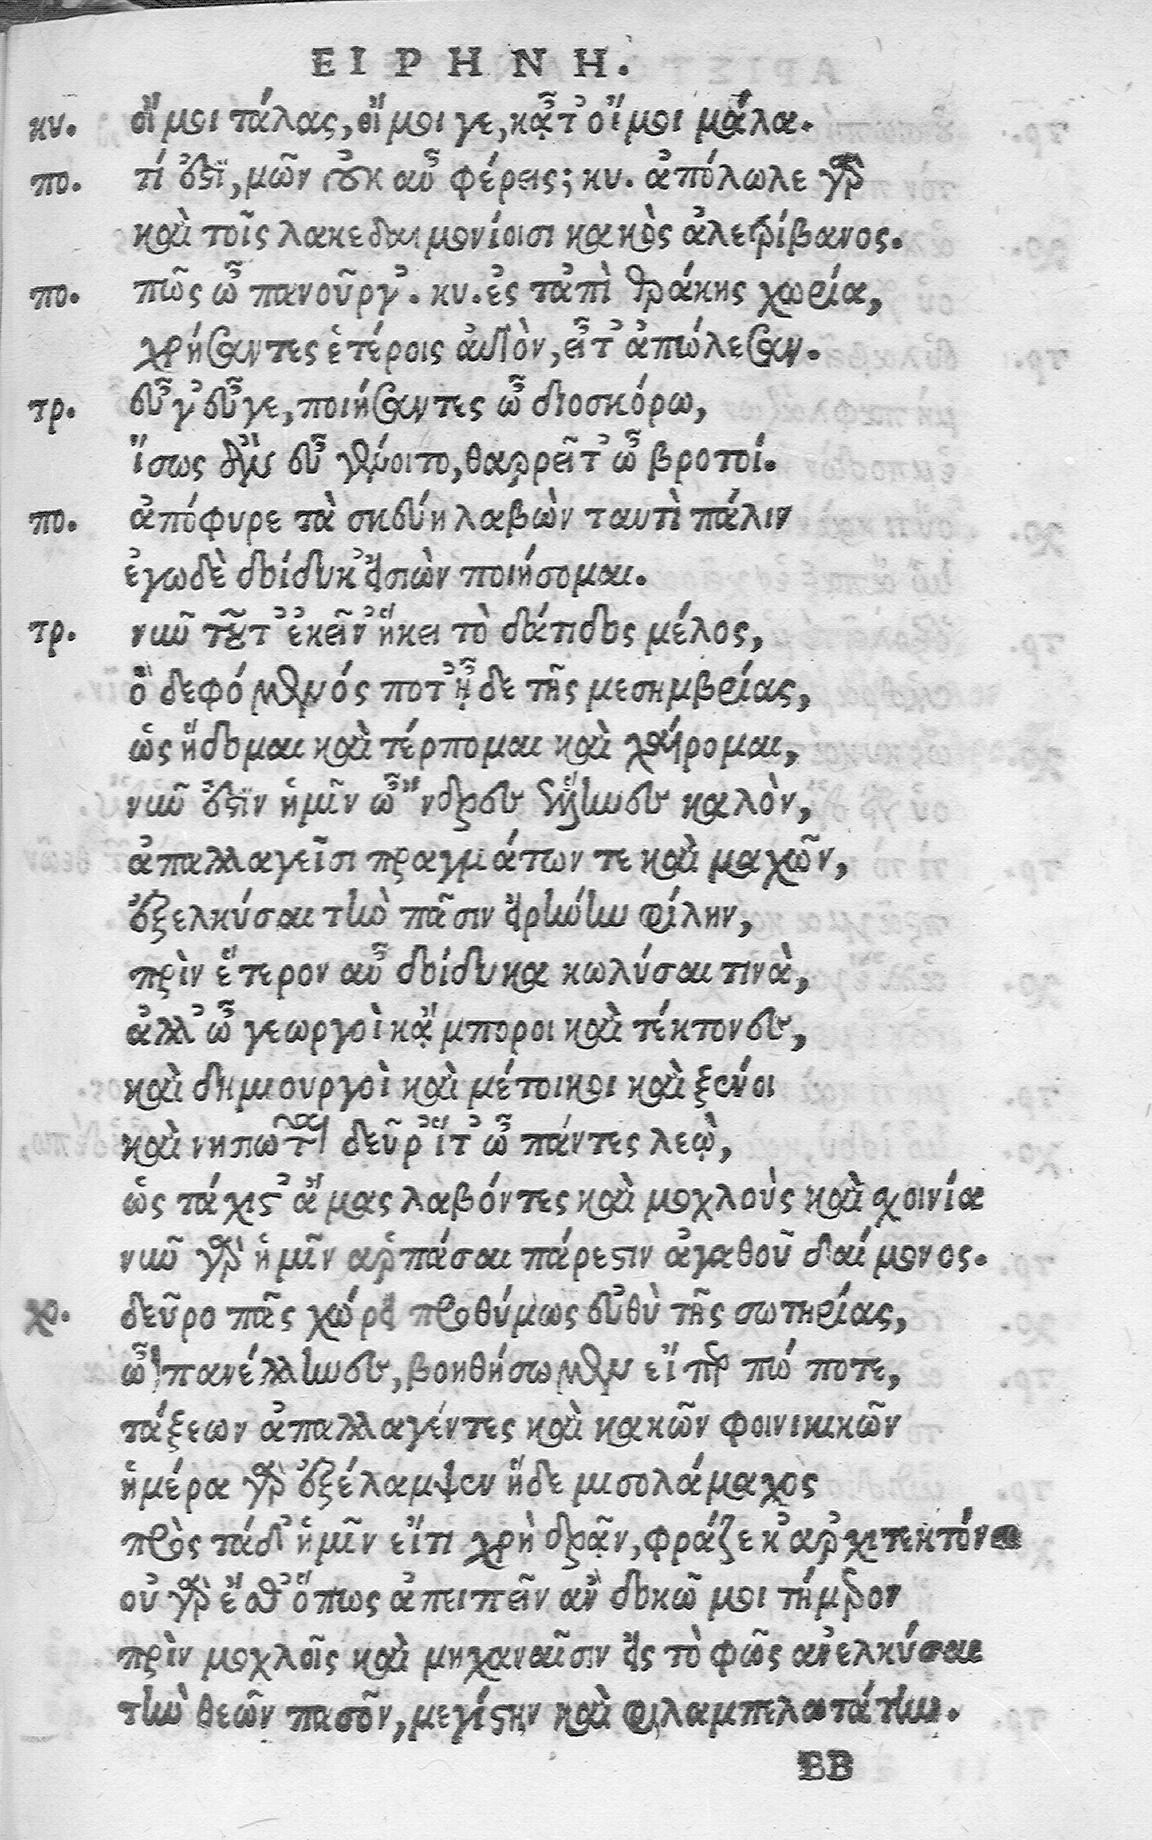 ΕΙΡΗΝΗ.
κυ. οἴμοι τάλας, οἴμοι γε, κᾆτ' οἴμοι μάλα.
πο. τί ἐστι, μῶν οὐκ αὖ φέρεις; κυ. ἀπόλωλε γὰρ
καὶ τοῖς λακεδαιμονίοισι κακὸς ἀλετρίβανος.
πο. πῶς ὦ πανοῦργ'. κυ. ἐς τἀπὶ θράκης χωρία,
χρήσαντες ἑτέροις αὐτὸν, εἶτ' ἀπώλεσαν.
τρ. εὖγ' εὖγε, ποιήσαντες ὦ διοσκόρω,
ἴσως ἂν εὖ γένοιτο, θαρρεῖτ' ὦ βροτοί.
πο. ἀπόφυρε τὰ σκεύη λαβὼν ταυτὶ πάλιν
ἐγωδὲ δοίδυκ' εἰσιὼν ποιήσομαι.
τρ. νῦν τοῦτ' ἐκεῖν' ἥκει τὸ δάτιδος μέλος,
ὃ δεφόμενός ποτ' ᾖδε τῆς μεσημβρίας,
ὡς ἥδομαι καὶ τέρπομαι καὶ χαίρομαι,
νῦν ἐστὶν ἡμῖν ὦ ἄνδρες ἕλληνες καλὸν,
ἀπαλλαγεῖσι πραγμάτων τε καὶ μαχῶν,
ἐξελκύσαι τὴν πᾶσιν εἰρήνην φίλην,
πρὶν ἕτερον αὖ δοίδυκα κωλύσαι τινὰ,
ἀλλ' ὦ γεωργοὶ κᾄμποροι καὶ τέκτονες,
καὶ δημιουργοὶ καὶ μέτοικοι καὶ ξένοι
καὶ νησιῶται δεῦρ' ἴτ' ὦ πάντες λεῲ,
ὡς τάχιστ' ἄμας λαβόντες καὶ μοχλοὺς καὶ σχοινία
νῦν γὰρ ἡμῖν ἁρπάσαι πάρεστιν ἀγαθοῦ δαίμονος.
χο. δεῦρο πᾶς χώρει προθύμως εὐθὺ τῆς σωτηρίας,
ὦ πανέλληνες, βοηθήσωμεν εἴπερ πώποτε,
τάξεων ἀπαλλαγέντες καὶ κακῶν φοινικικῶν
ἡμέρα γὰρ ἐξέλαμψεν ἥδε μισολάμαχος
πρὸς τάδ' ἡμῖν εἴτι χρὴ δρᾷν, φράζε κ' ἀρχιτεκτόνει
οὐ γὰρ ἔσθ' ὅπως ἀπειπεῖν ἂν δοκῶ μοι τήμερον
πρὶν μοχλοῖς καὶ μηχαναῖσιν εἰς τὸ φῶς ἀνελκύσαι
τὴν θεῶν πασῶν, μεγίστην καὶ φιλαμπελωτάτην.
BB